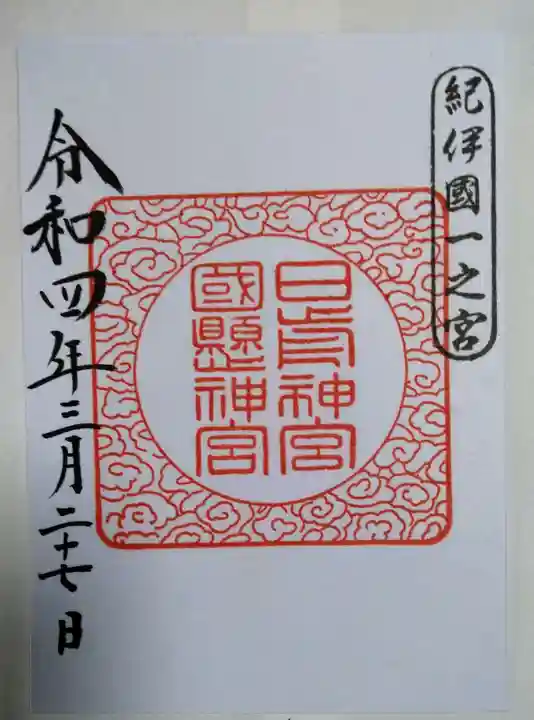 紀伊國一之宮
日前神宮
國懸神宮
令和四年三月二十七日